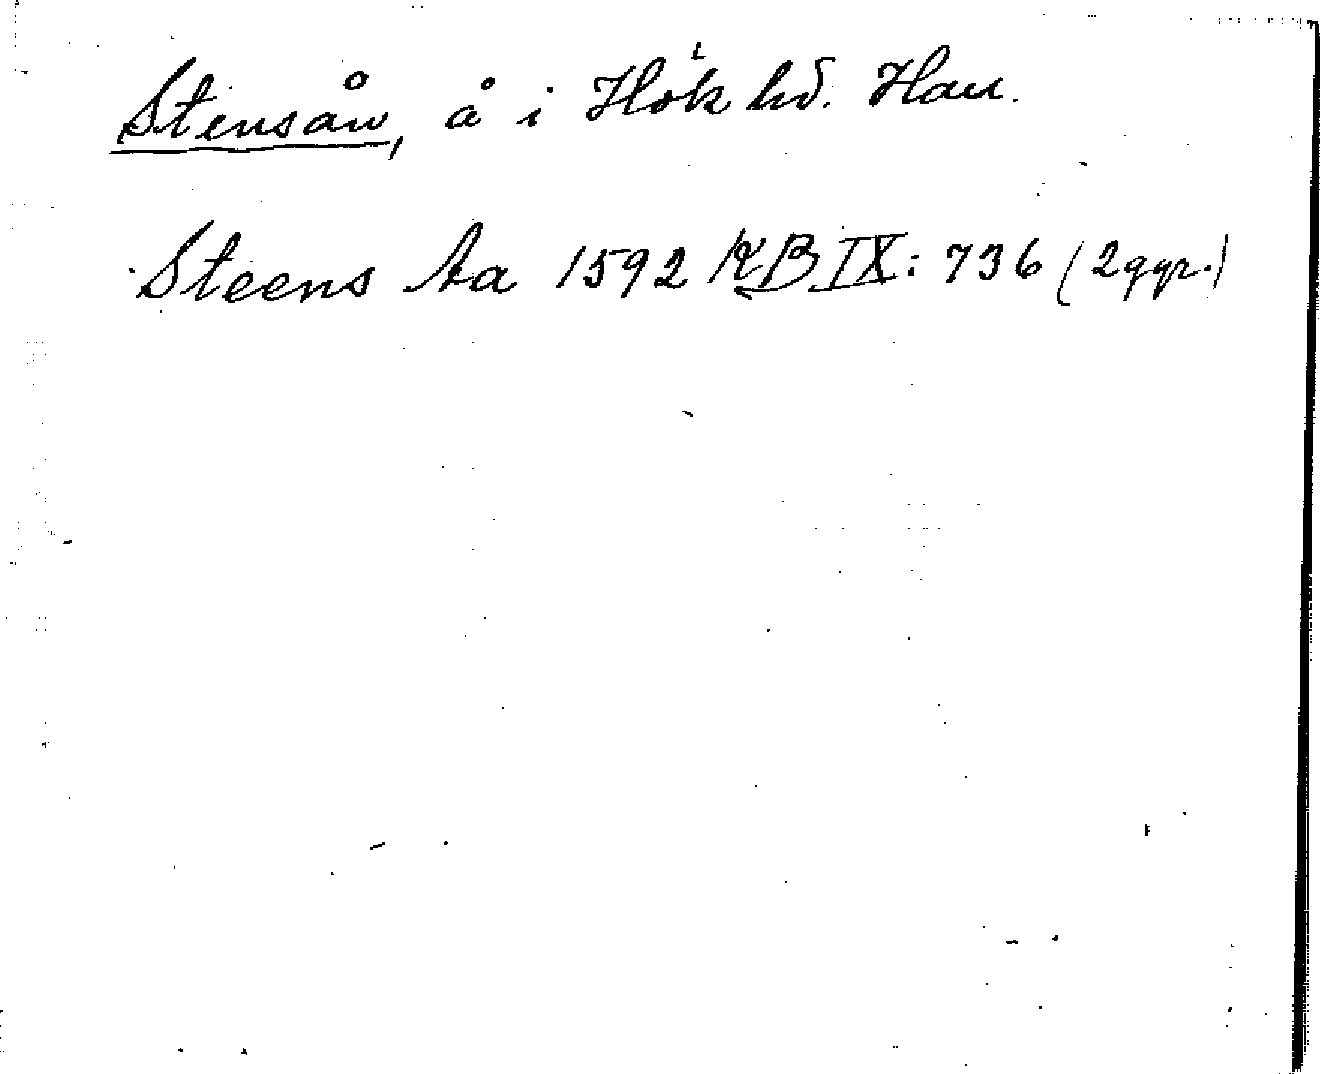 Stensån, å i Hök hd. Hall.
Steens Aa 1592 KB IX: 736 (2 ggr.)